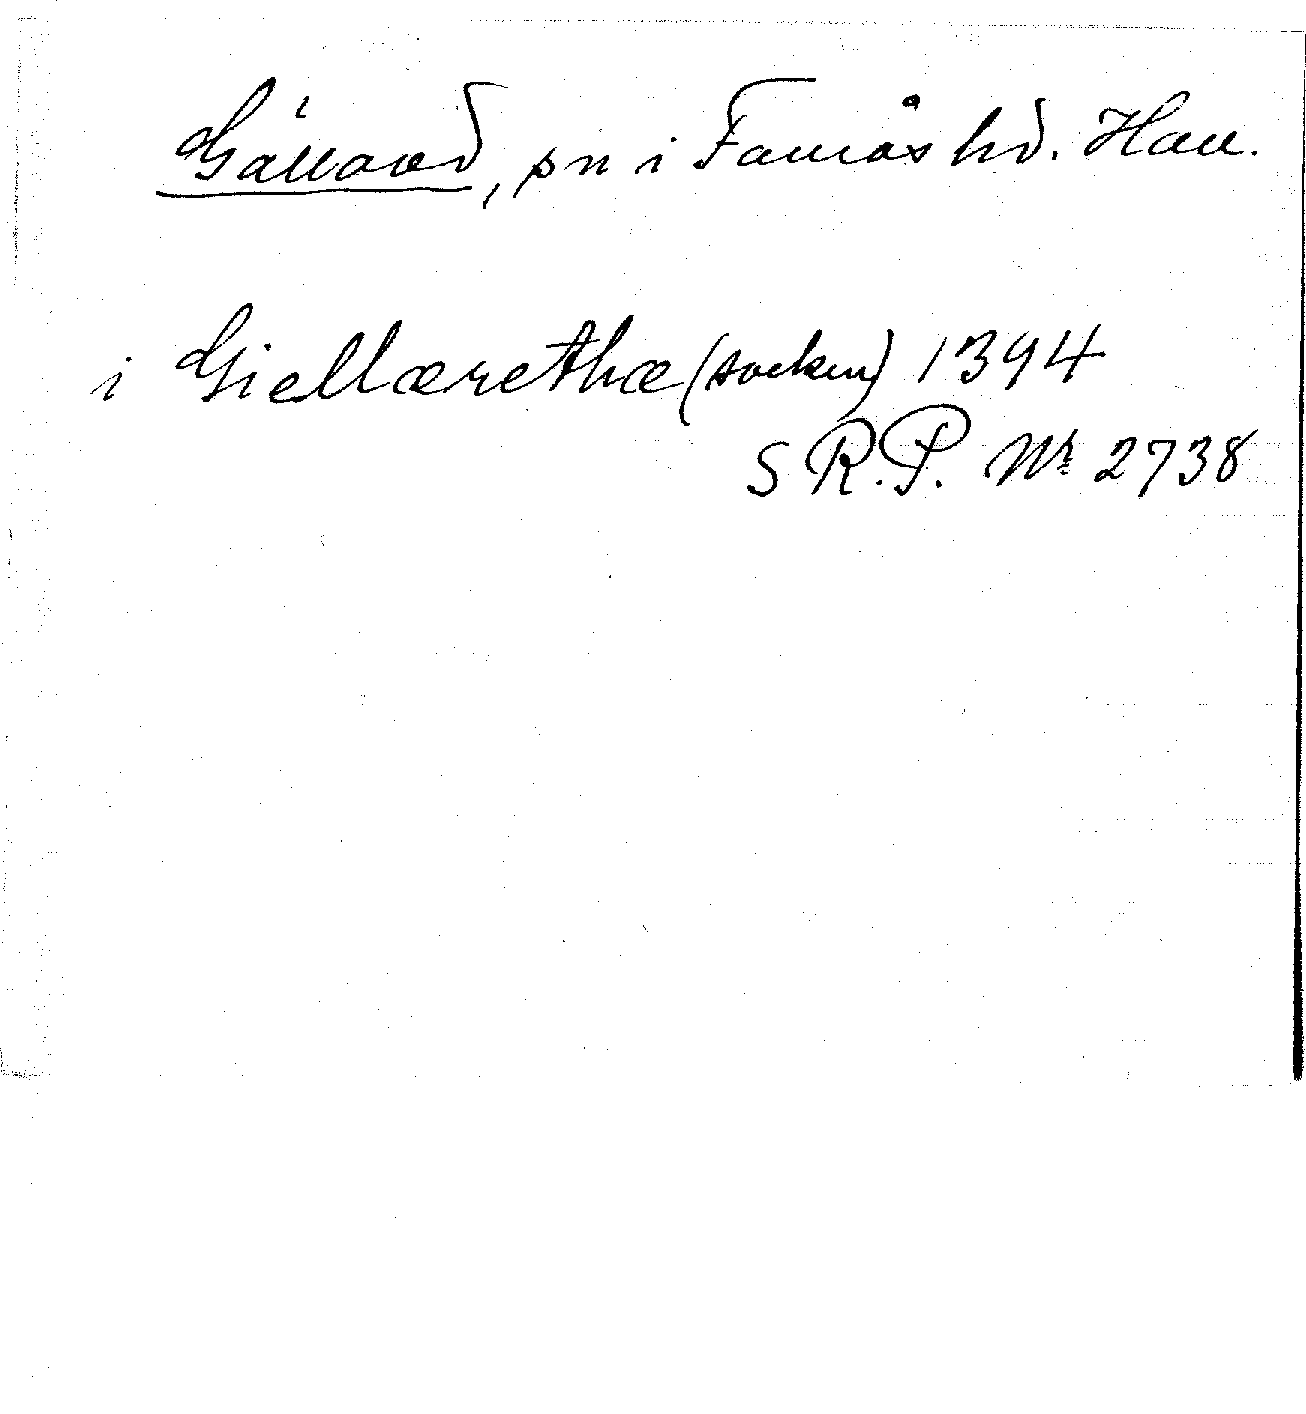 Gällared, sn i Faurås hd. Hall.
i Giellærethæ (socken) 1394
S R.P. Nr 2738